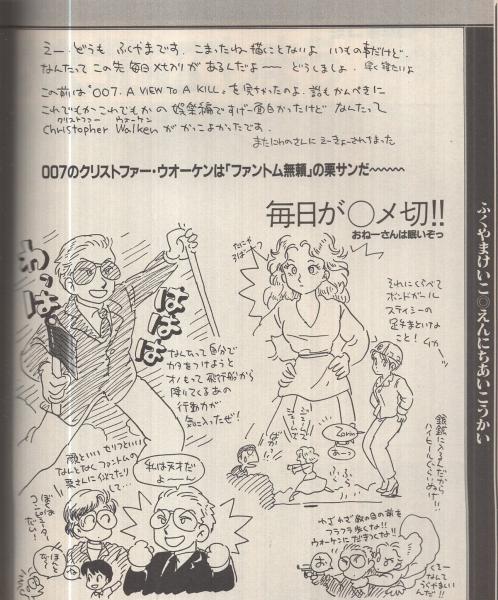 えー どうも ふくやまです。こまったね 描くことないよ いつもの事だけど.
なんたって この先 毎日メセカリ があるんだよ―― どうしましょ. 早く寝たいよ
この前は"007. A VIEW TO A KILL"を
これでもかこれでもか の 娯楽編ですげー面白かったけど なんたって
クリストファー ウォーケン
Christopher Walken が かっこよかったです.
またにわのさんに
007のクリストファー・ウオーケンは「ファントム無頼」の栗サンだ〜〜〜〜
毎日が〇〆切!!
おねーさんは眠いぞっ
ふくやまけいこ◎えんにちあいこうかい
わっはっ
ははは
なんたって自分で
カタをつけようと
オノもって飛行船から
降りてくるあの
行動力が
気に入ったぜ!
それにくらべて
ボンドガール
ステイシーの
足手まといな
こと!
銀鉱に入るんだから
ハイヒールぐらいぬげ!!
顔といい セリフといい
なんとなくファントムの
栗さんに似てたり
して…
ぼくは
コンピュータ
だい!
私は天才だ
よ――ん
ばかっ
ジェームズ
ジェームズ
あ〜っ
ふらふら
わざわざ敵の目の前を
フラフラ歩くな!!
ウォーケンにだきつくな!!
くそー
なんて
うらやましい
んだ!!